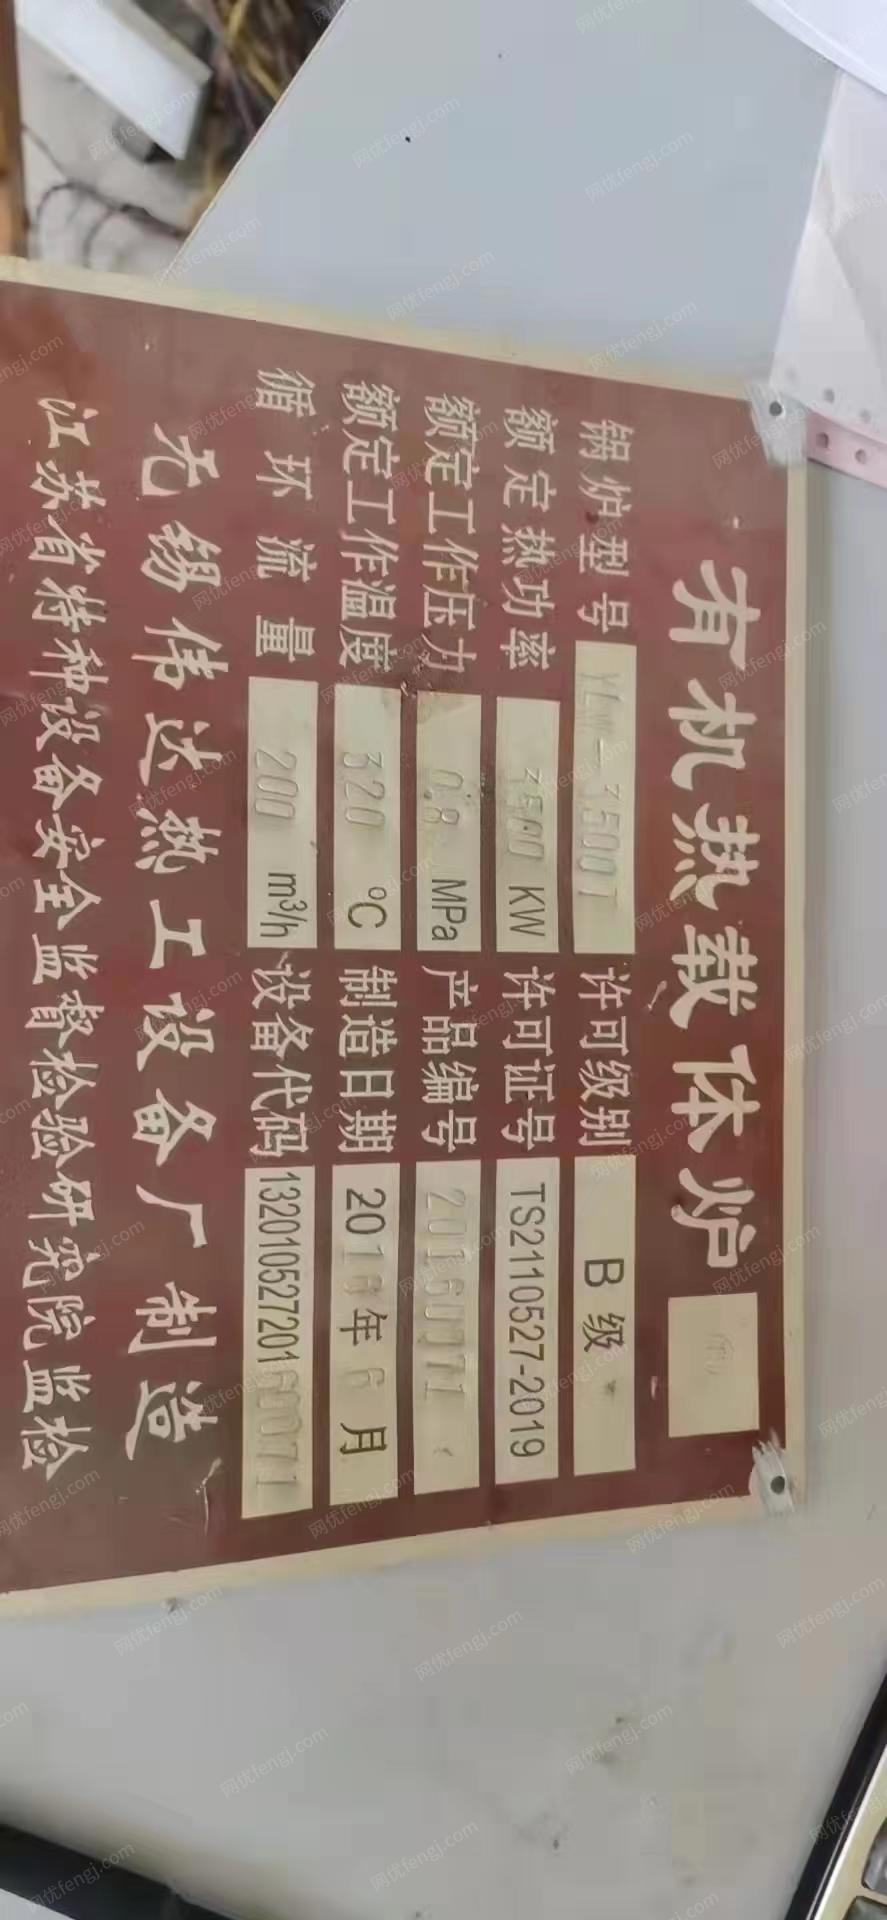 有机热载体炉
锅炉型号 YLW-3500T 许可级别 B 级
额定热功率 3500 KW 许可证号 TS2110527-2019
额定工作压力 0.8 MPa 产品编号
额定工作温度 320 ℃ 制造日期 2016年6月
循环流量 200 m³/h 设备代码 13201052720160071
无锡伟达热工设备厂制造
江苏省特种设备安全监督检验研究院监检
网优fengj.com